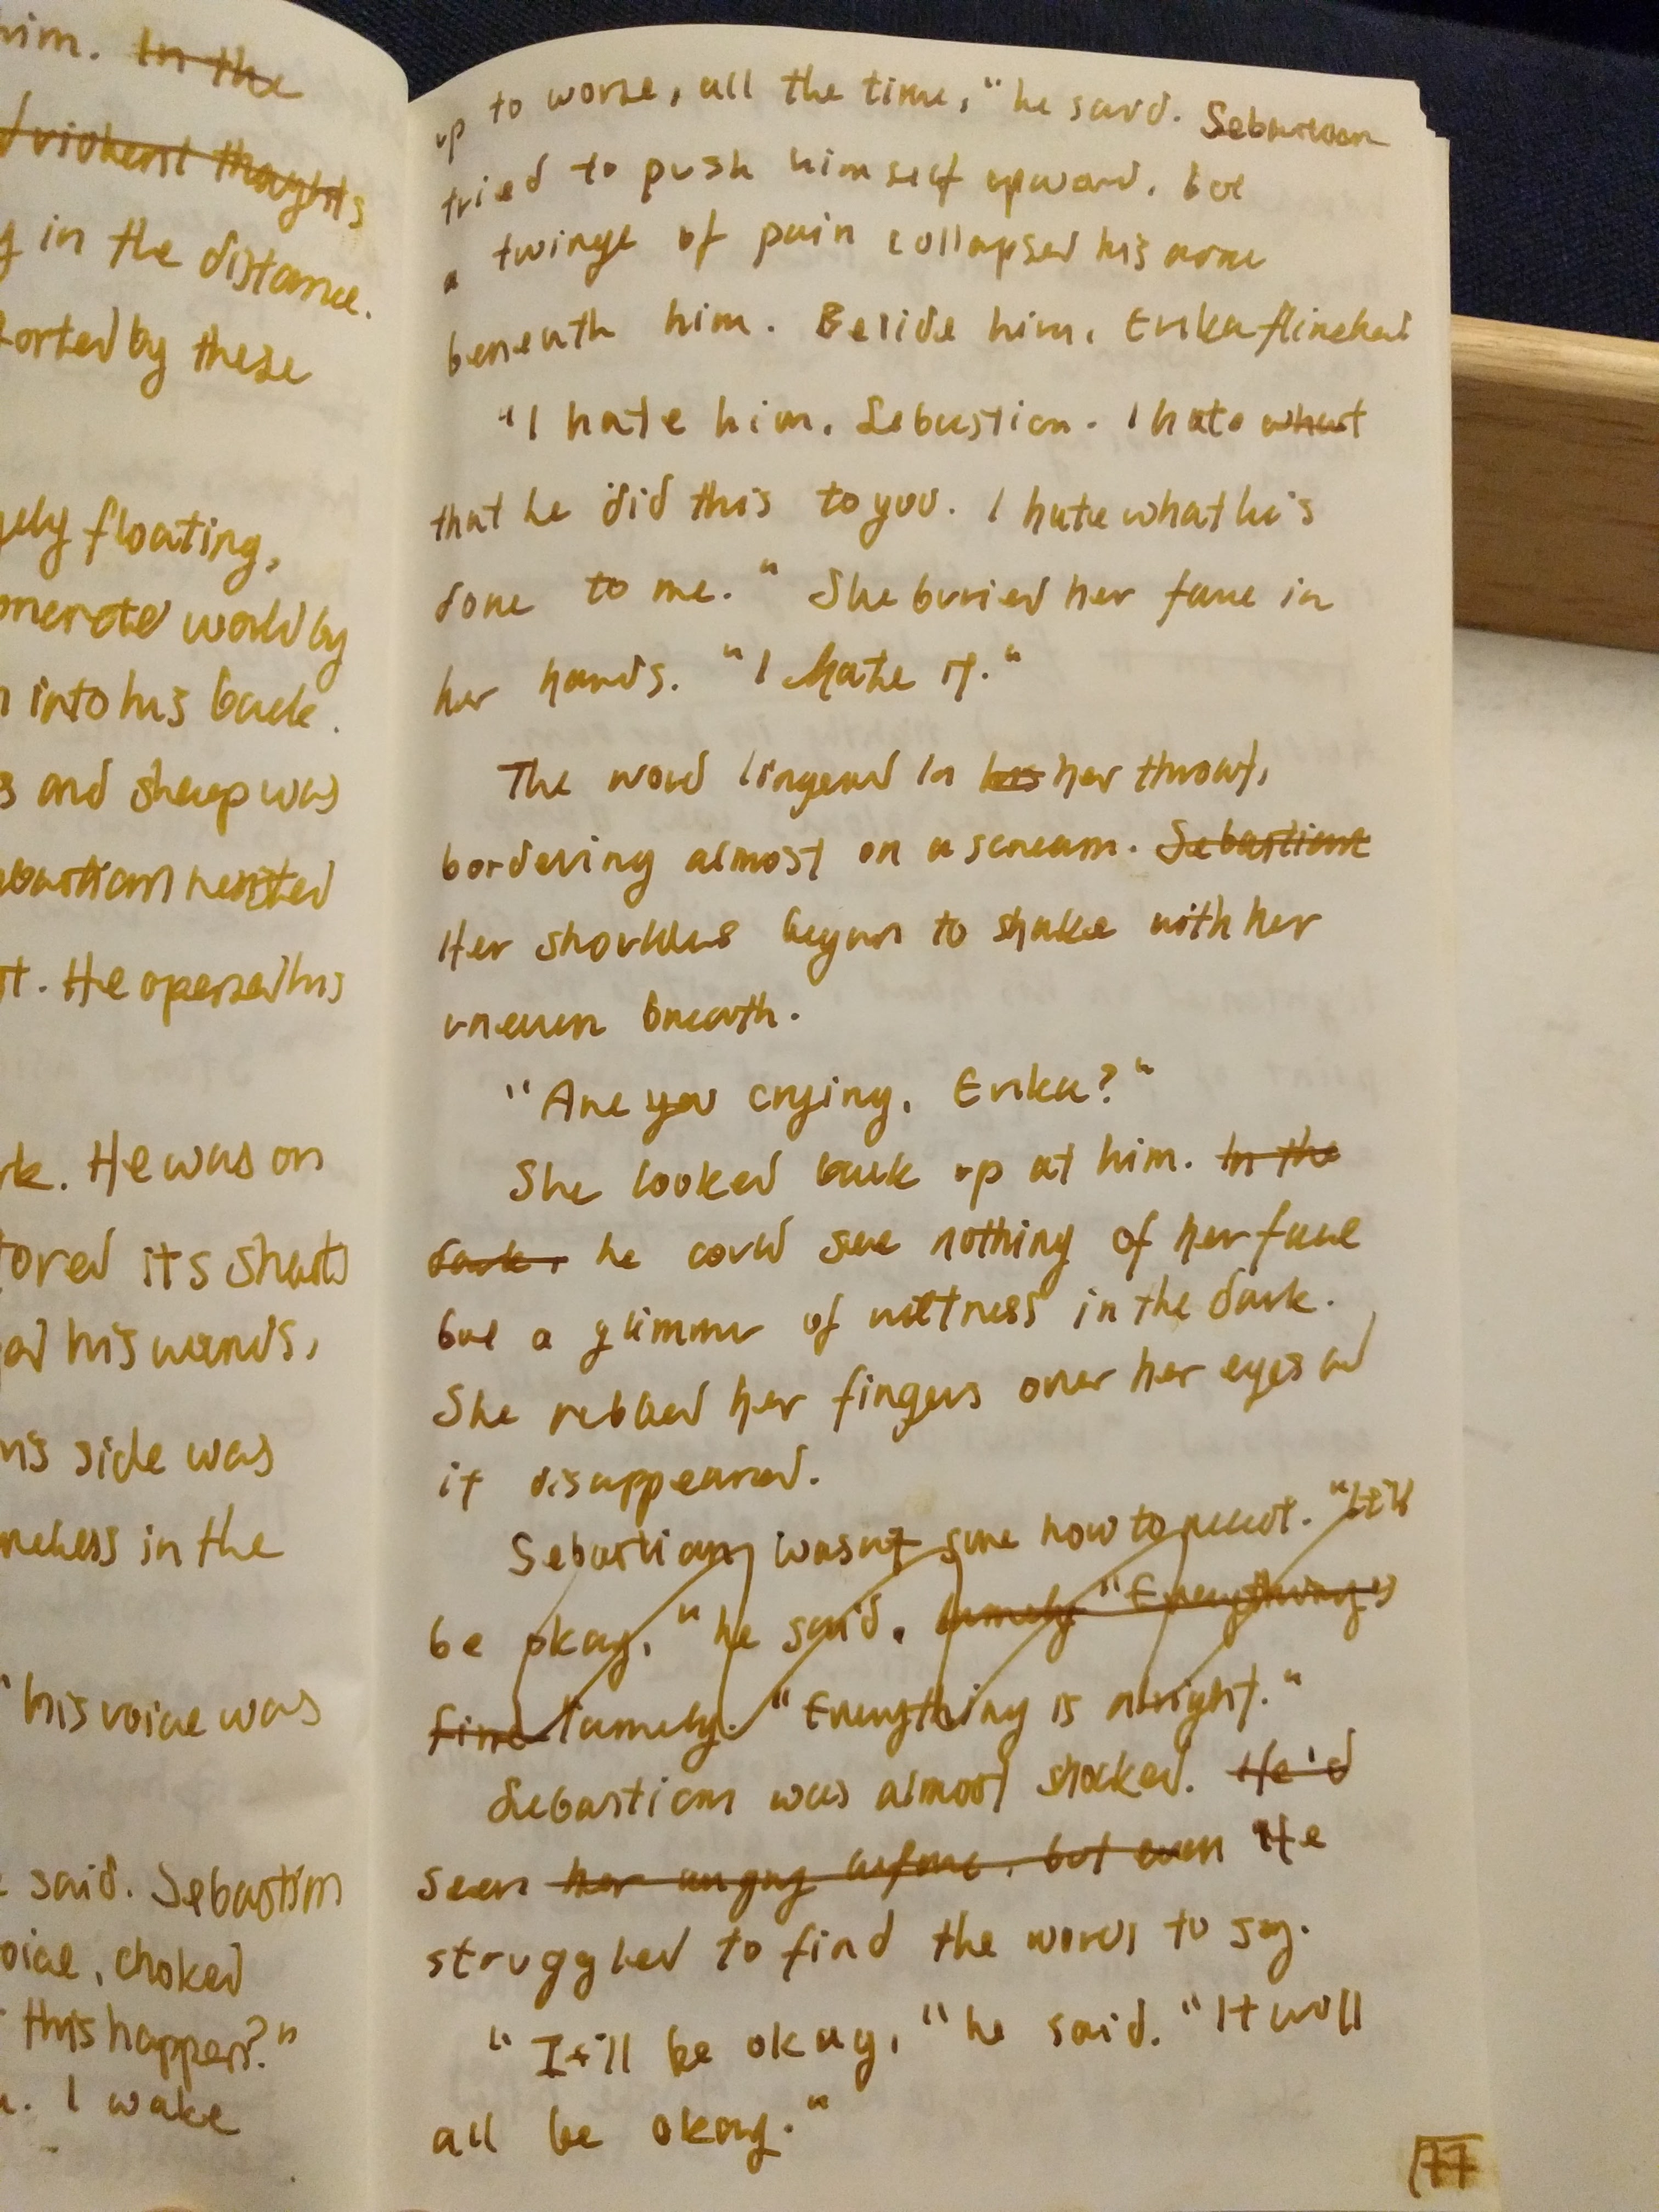 him. In the
d violent thoughts
g in the distance.
forted by these
gely floating,
oncrete world by
n into his back.
s and sheep was
ebastian nestled
st. He opened his
rk. He was on
tored its shouts
ed his words,
n's side was
meless in the
" his voice was
e said. Sebastian
oice, choked
this happen?"
u. I wake
up to worse, all the time," he said. Sebastian
tried to push himself upward, but
a twinge of pain collapsed his arm
beneath him. Beside him, Erika flinched
"I hate him, Sebastian. I hate what
that he did this to you. I hate what he's
done to me." She buried her face in
her hands. "I hate it."
The word lingered in his her throat,
bordering almost on a scream. Sebastian
Her shoulders began to shake with her
uneven breath.
"Are you crying, Erika?"
She looked back up at him. In the
dark, he could see nothing of her face
but a glimmer of wetness in the dark.
She rubbed her fingers over her eyes and
it disappeared.
Sebastian wasn't sure how to react. "It'll
be okay," he said. lamely. "Everything is
fine lamely. "Everything is alright."
Sebastian was almost shocked. He'd
seen her angry before, but even He
struggled to find the words to say.
"It'll be okay," he said. "It will
all be okay."
77